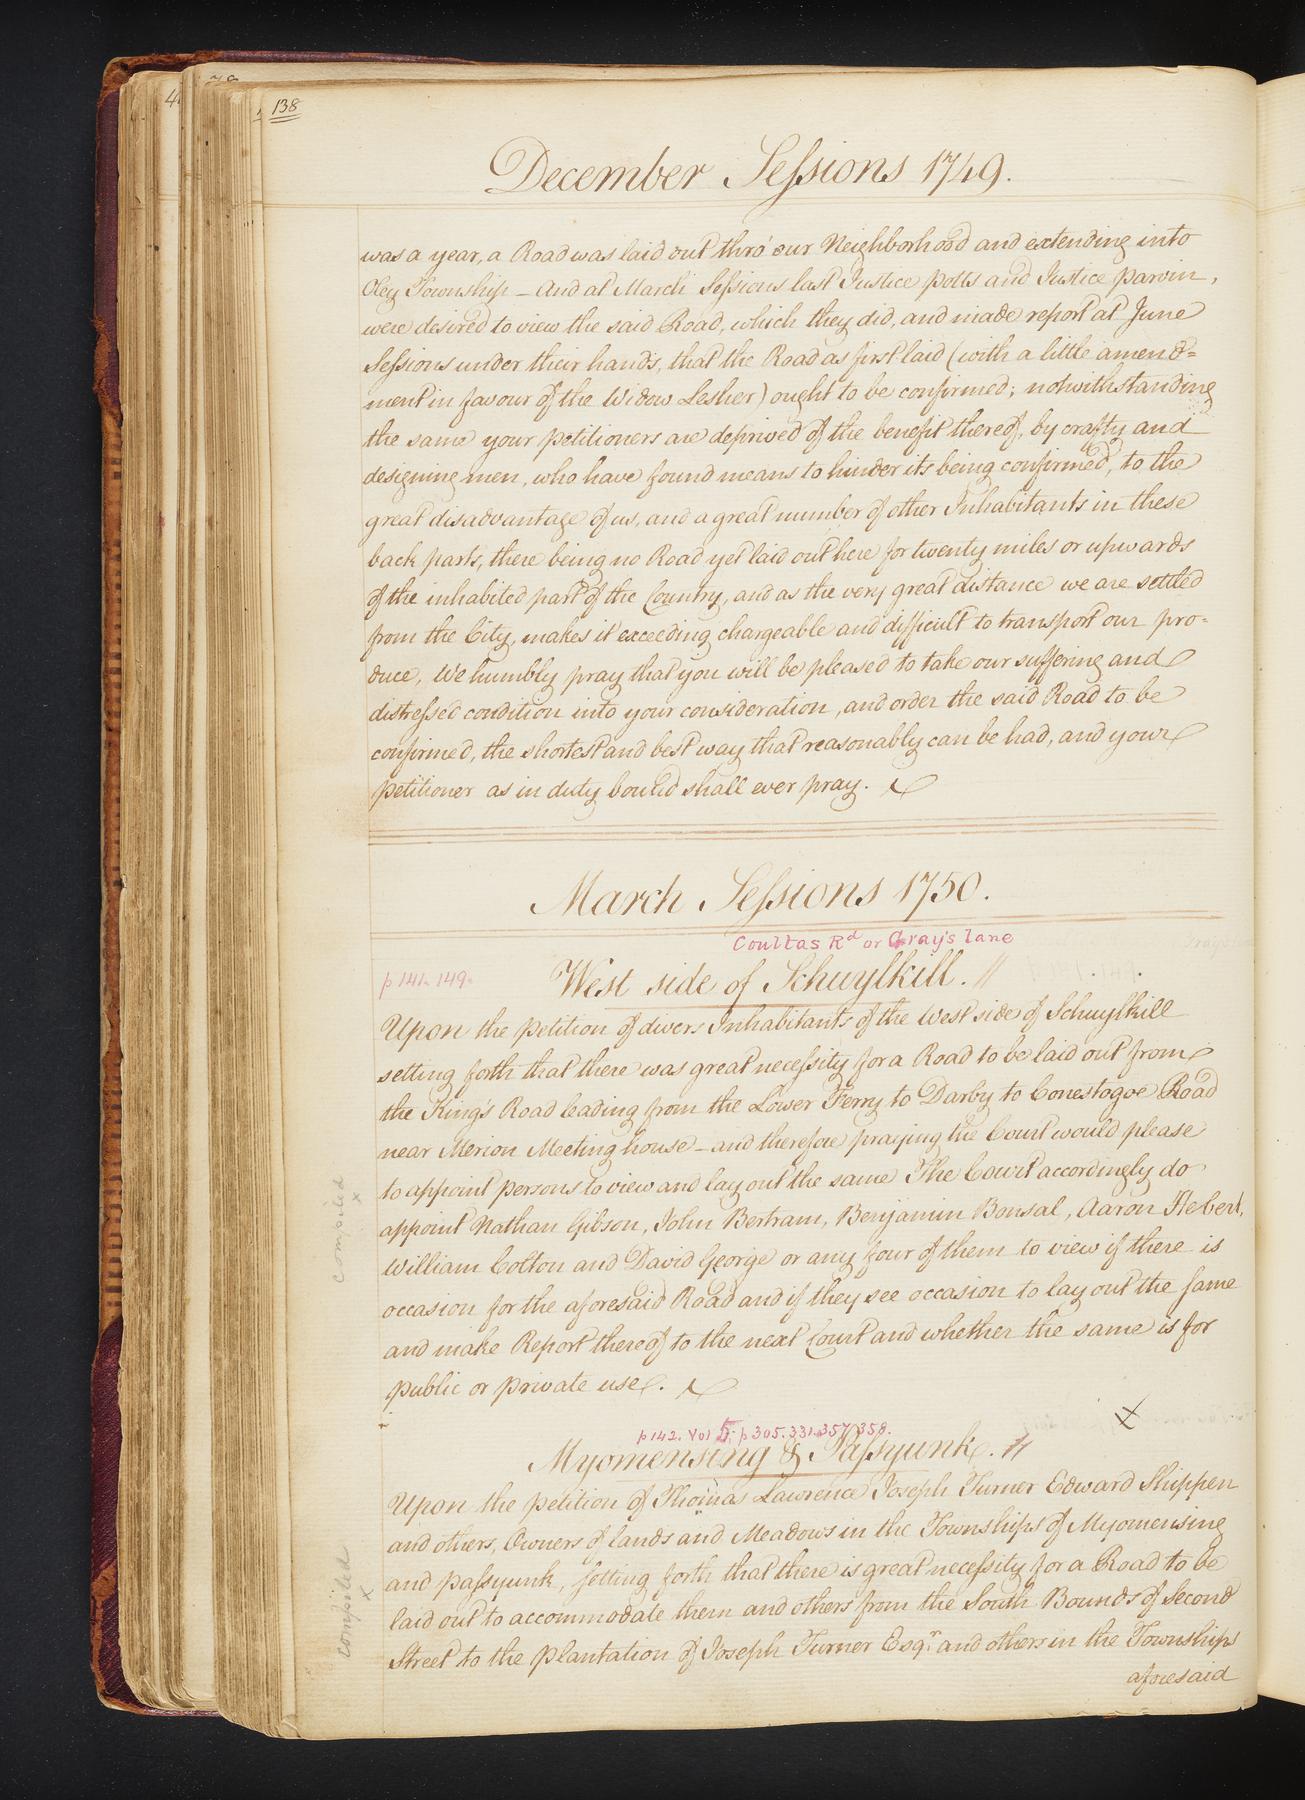 138
December Sessions 1749.
was a year, a Road was laid out thro' our Neighborhood and extending into
Oley Township – And at March Sessions last Justice Potts and Justice Parvin,
were desired to view the said Road, which they did, and made report at June
Sessions under their hands, that the Road as first laid (with a little amend=
ment in favour of the Widow Lesher) ought to be confirmed; notwithstanding
the same your petitioners are deprived of the benefit thereof, by crafty and
designing men, who have found means to hinder its being confirmed, to the
great disadvantage of us, and a great number of other Inhabitants in these
back parts, there being no Road yet laid out here for twenty miles or upwards
of the inhabited part of the Country, and as the very great distance we are settled
from the City, makes it exceeding chargeable and difficult to transport our pro=
duce, We humbly pray that you will be pleased to take our suffering and
distressed condition into your consideration, and order the said Road to be
confirmed, the shortest and best way that reasonably can be had, and your
petitioner as in duty bound shall ever pray.
March Sessions 1750.
Coultas Rd or Gray's lane
p 141. 149.
West side of Schuylkill. //
Upon the petition of divers Inhabitants of the West side of Schuylkill
setting forth that there was great necessity for a Road to be laid out from
the King's Road leading from the Lower Ferry to Darby to Conestogoe Road
near Merion Meeting house – and therefore praying the Court would please
to appoint persons to view and lay out the same The Court accordingly do
appoint Nathan Gibson, John Bertram, Benjamin Bonsal, Aaron Hebert,
William Colton and David George or any four of them to view if there is
occasion for the aforesaid Road and if they see occasion to lay out the same
and make Report thereof to the next Court and whether the same is for
public or private use.
compiled
x
x
p 142. Vol 5. p 305. 331. 357. 358.
Myomensing & Passyunk. //
Upon the petition of Thomas Lawrence Joseph Turner Edward Shippen
and others, Owners of lands and Meadows in the Townships of Myomensing
and Passyunk, setting forth that there is great necessity for a Road to be
laid out to accommodate them and others from the South Bounds of Second
Street to the plantation of Joseph Turner Esqr. and others in the Townships
aforesaid
compiled
x